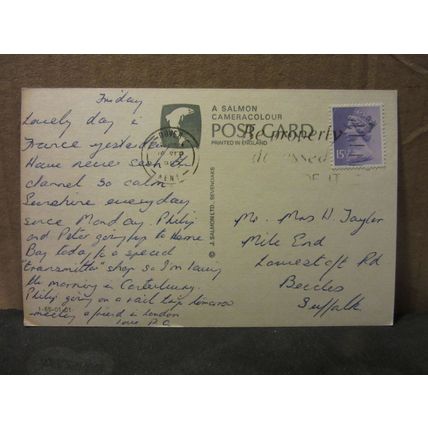 Friday
Lovely day in
France yesterday
Have never seen the
channel so calm
Sunshine everyday
since Monday. Philip
and Peter going up to Herne
Bay today to a special
"transmitter" shop so I'm having
the morning in Canterbury.
Philip going on a rail trip tomorrow
meeting a friend in London
Love P.C.
1-65-01-01
A SALMON
CAMERACOLOUR
POST CARD
PRINTED IN ENGLAND
© J. SALMON LTD. SEVENOAKS
DOVER
KENT
Be properly
15
Mr. Mrs W. Taylor
Mile End
Lowestoft Rd
Beccles
Suffolk